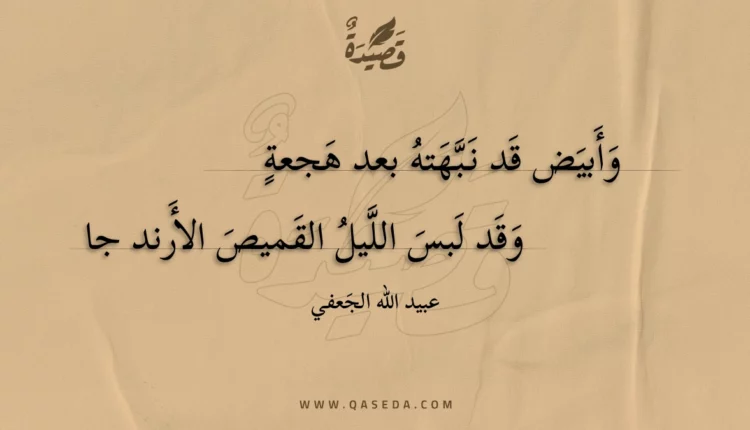 قَصِيْدَةٌ
وَأَبيَض قَد نَبَّهَتهُ بعد هَجعةٍ
وَقَد لَبسَ اللَّيلُ القَميصَ الأَرند جا
عبيد الله الجَعفي
WWW.QASEDA.COM